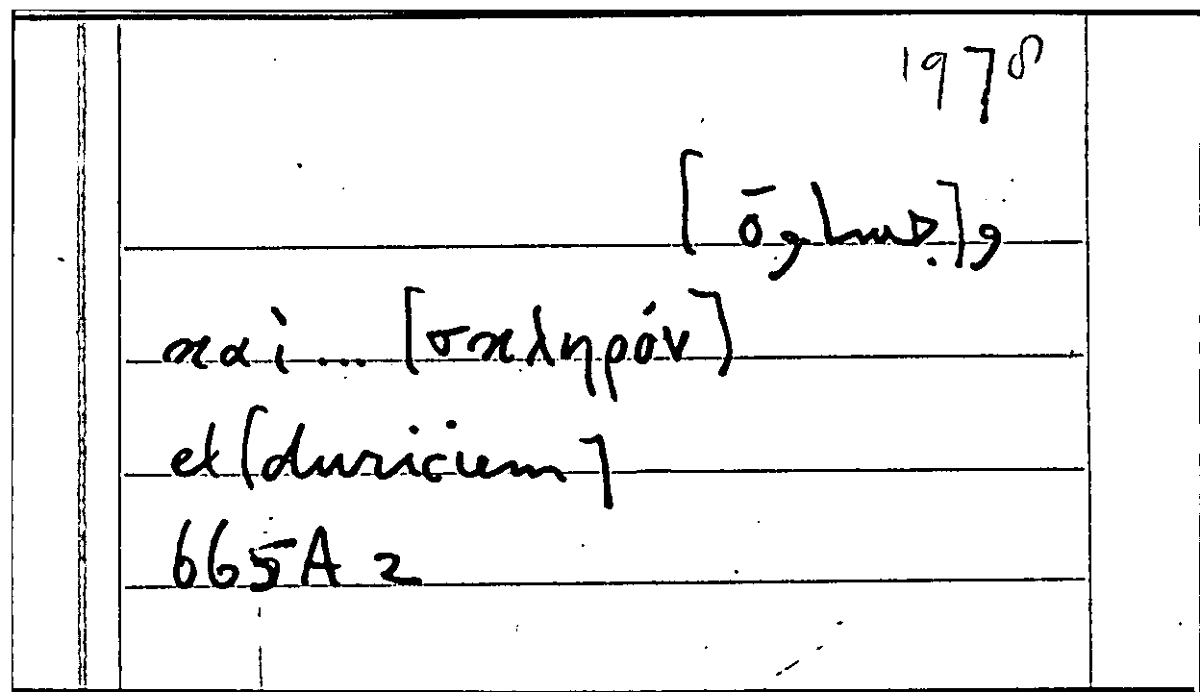 1978
καὶ ... [σκληρόν]
et [duriciem]
665A 2